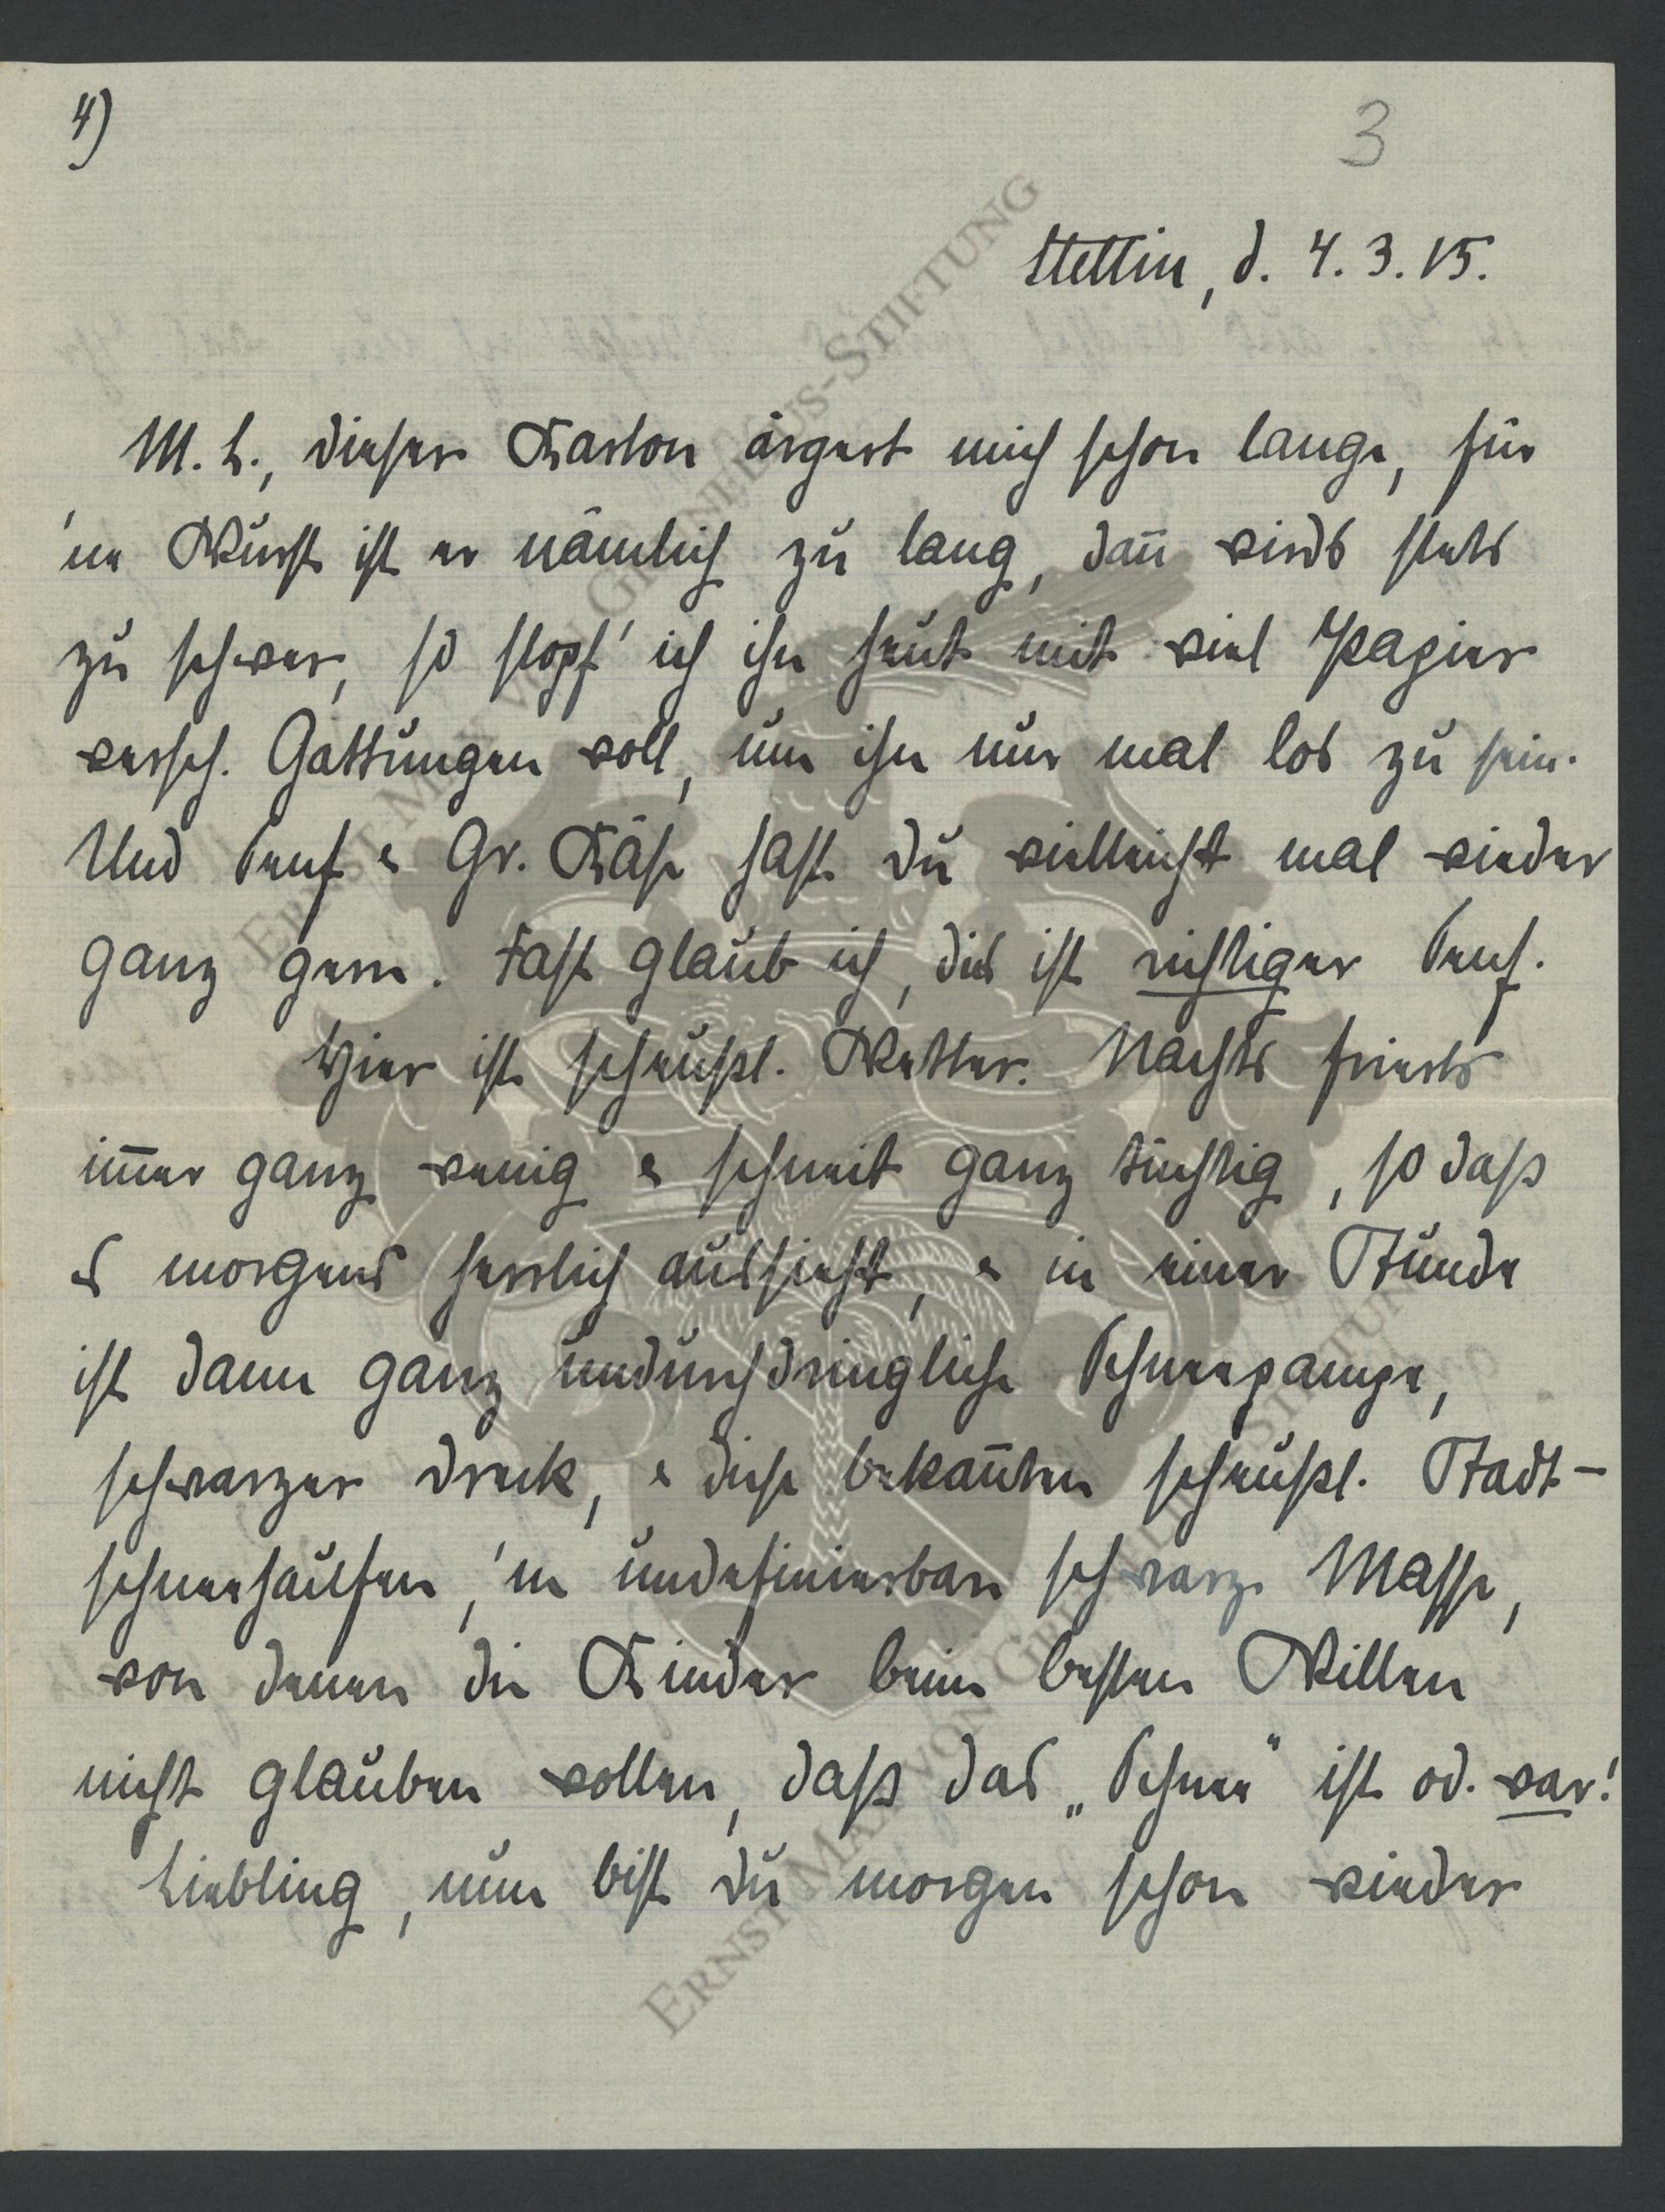 4)
3
Stettin, d. 4.3.15.
M. L., dieser Karton ärgert mich schon lange, für
'ne Wurst ist er nämlich zu lang, dan̄ wirds stets
zu schwer, so stopf' ich ihn heut mit viel Papier
versch. Gattungen voll, um ihn nur mal los zu sein.
Und Senf & Gr. Käse hast du vielleicht mal wieder
ganz gern. Fast glaub ich, dies ist richtiger Senf.
Hier ist scheußl. Wetter. Nachts frierts
im̄er ganz wenig & schneit ganz tüchtig, so daß
es morgens herrlich aussieht, & in einer Stunde
ist dann ganz undurchdringliche Schneepampe,
schwarzer Dreck, & diese bekan̄ten scheußl. Stadt-
schneehaufen, 'ne undefinierbare schwarze Masse,
von denen die Kinder beim besten Willen
nicht glauben wollen, daß das „Schnee" ist od. war!
Liebling, nun bist du morgen schon wieder
ERNST MAX VON GRUNELIUS-STIFTUNG
ERNST MAX VON GRUNELIUS-STIFTUNG